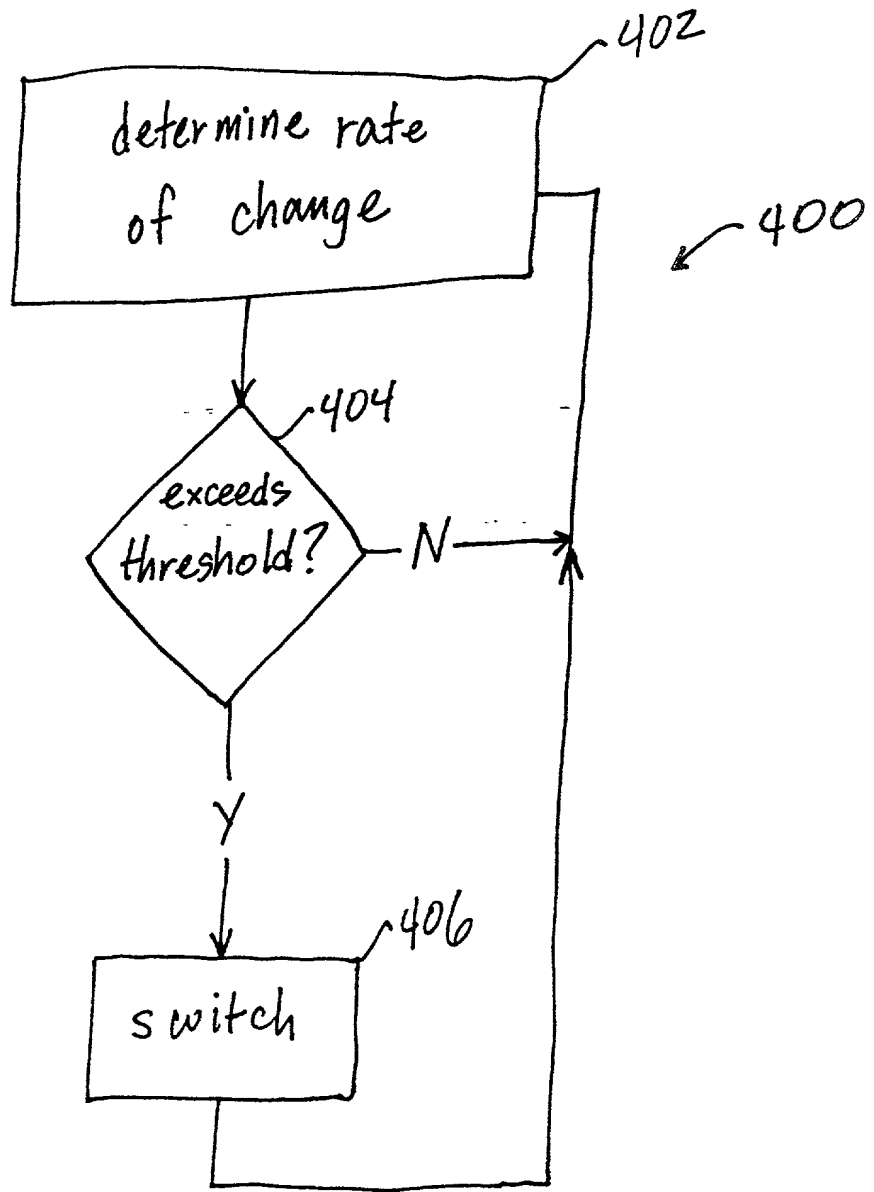 402
determine rate
of change
400
404
exceeds
threshold?
N
Y
406
switch